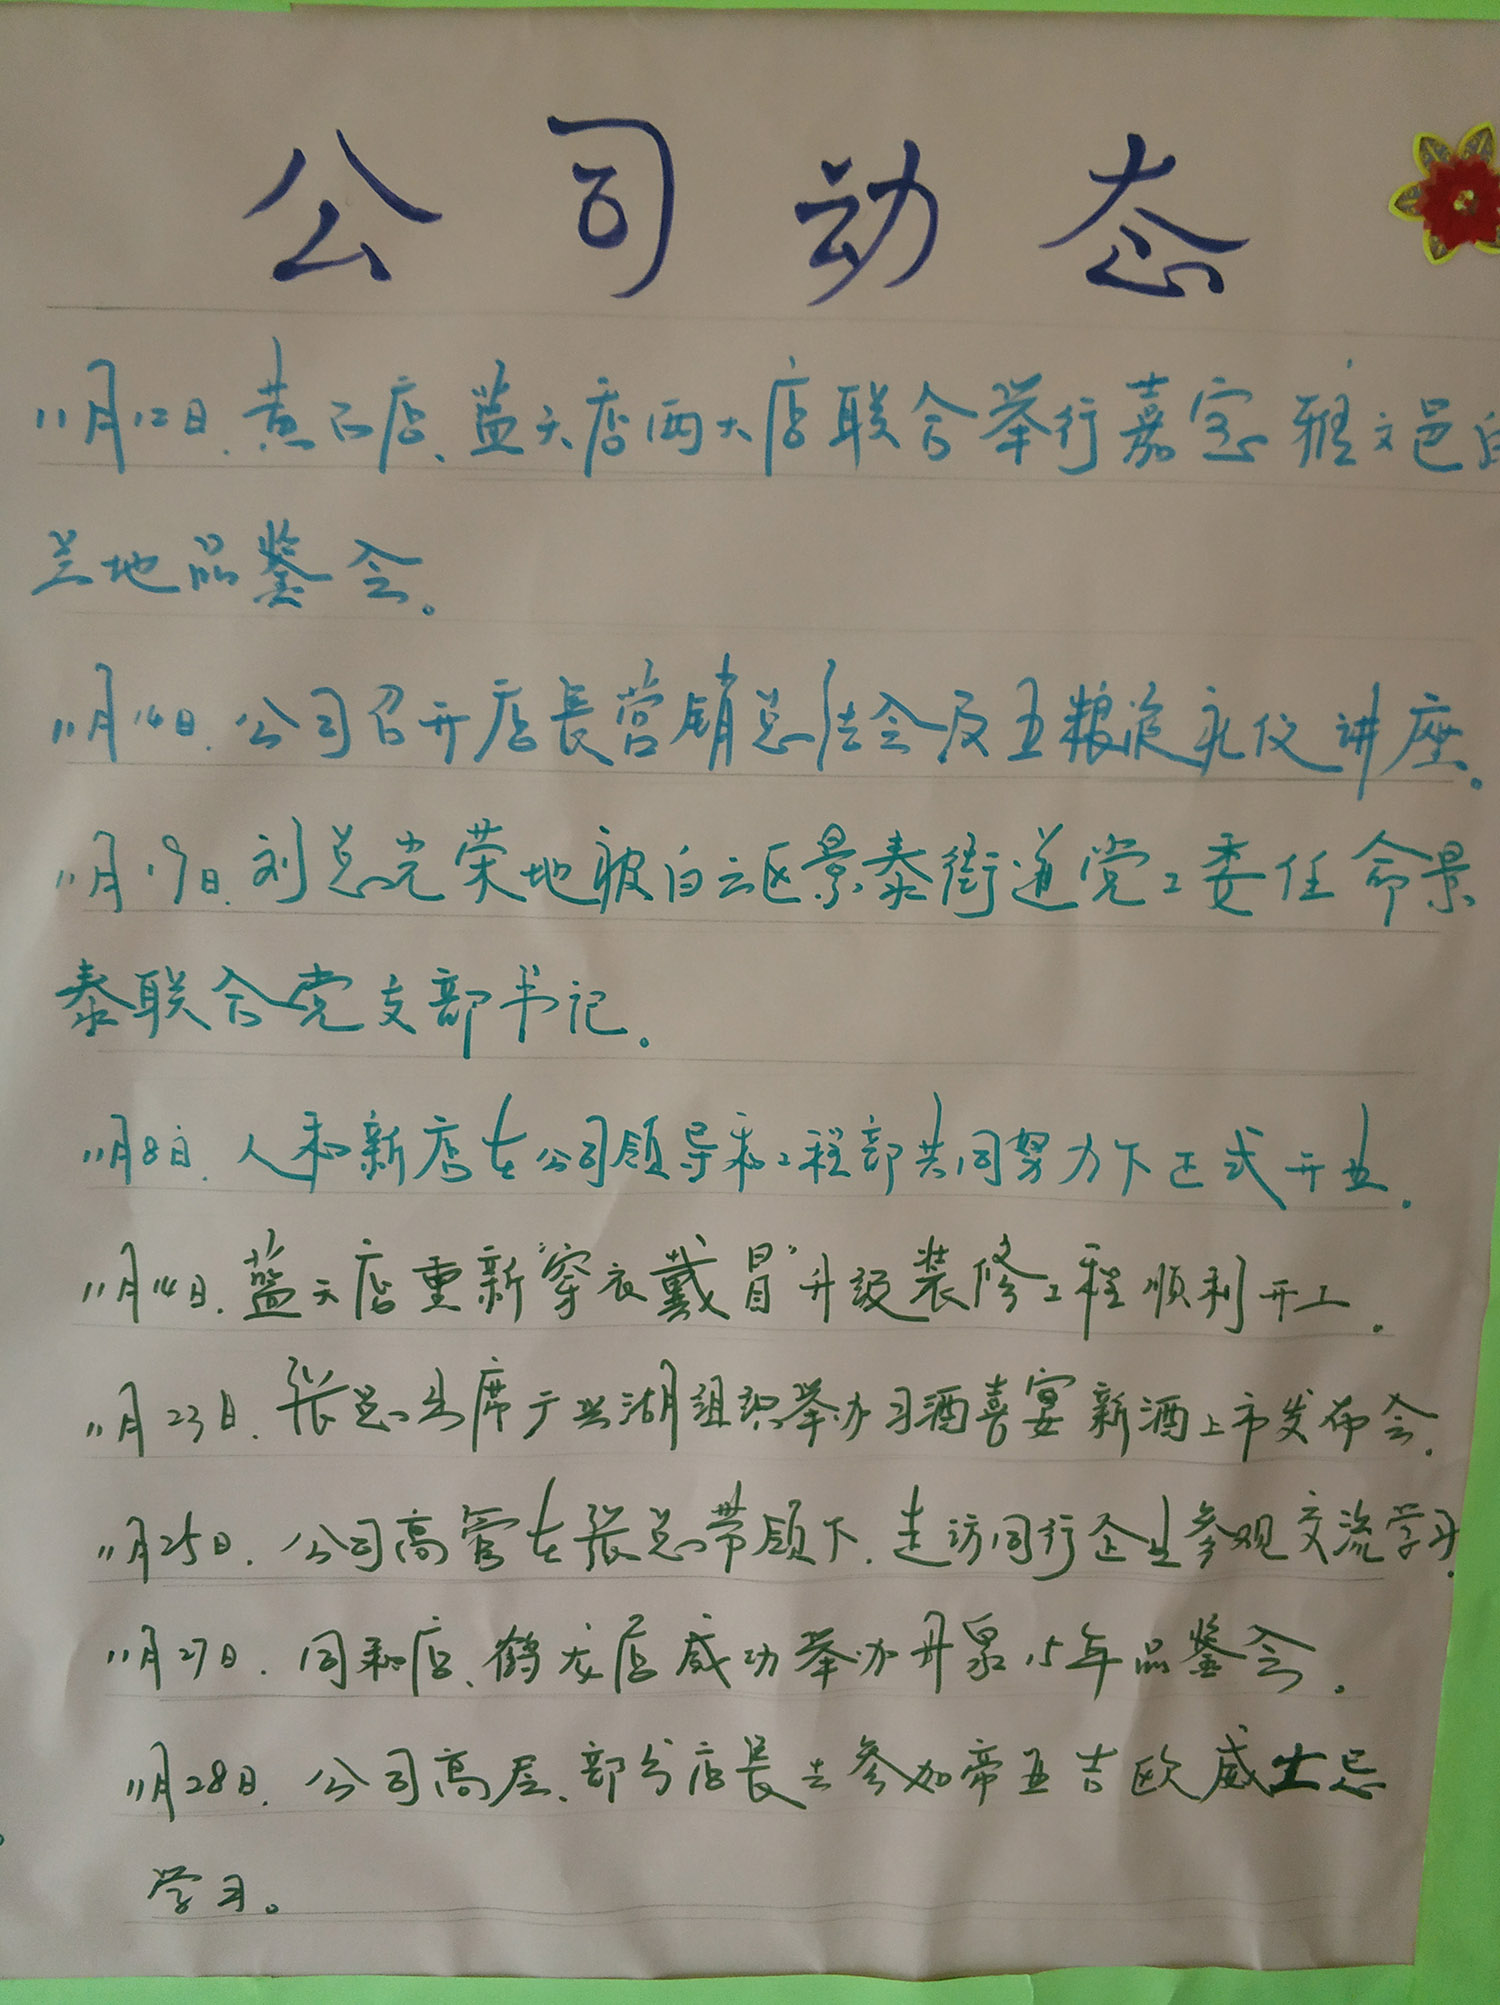 公司动态
11月12日、黄石店、蓝天店两大店联合举行嘉宓雅文邑白
兰地品鉴会。
11月14日、公司召开店長营销总结会及五粮液礼仪讲座。
11月19日、刘总光荣地被白云区景泰街道党工委任命景
泰联合党支部书记。
11月8日、人和新店在公司领导和工程部共同努力下正式开业。
11月14日、蓝天店重新"穿衣戴冒"升级装修工程顺利开工。
11月23日、张总出席于 湖组织举办习酒喜宴新酒上市发布会。
11月25日、公司高管在张总带领下、走访同行企业参观交流学习。
11月27日、同和店、鹤龙店成功举办丹泉15年品鉴会。
11月28日、公司高层、部分店長去参加帝亚吉欧威士忌
学习。